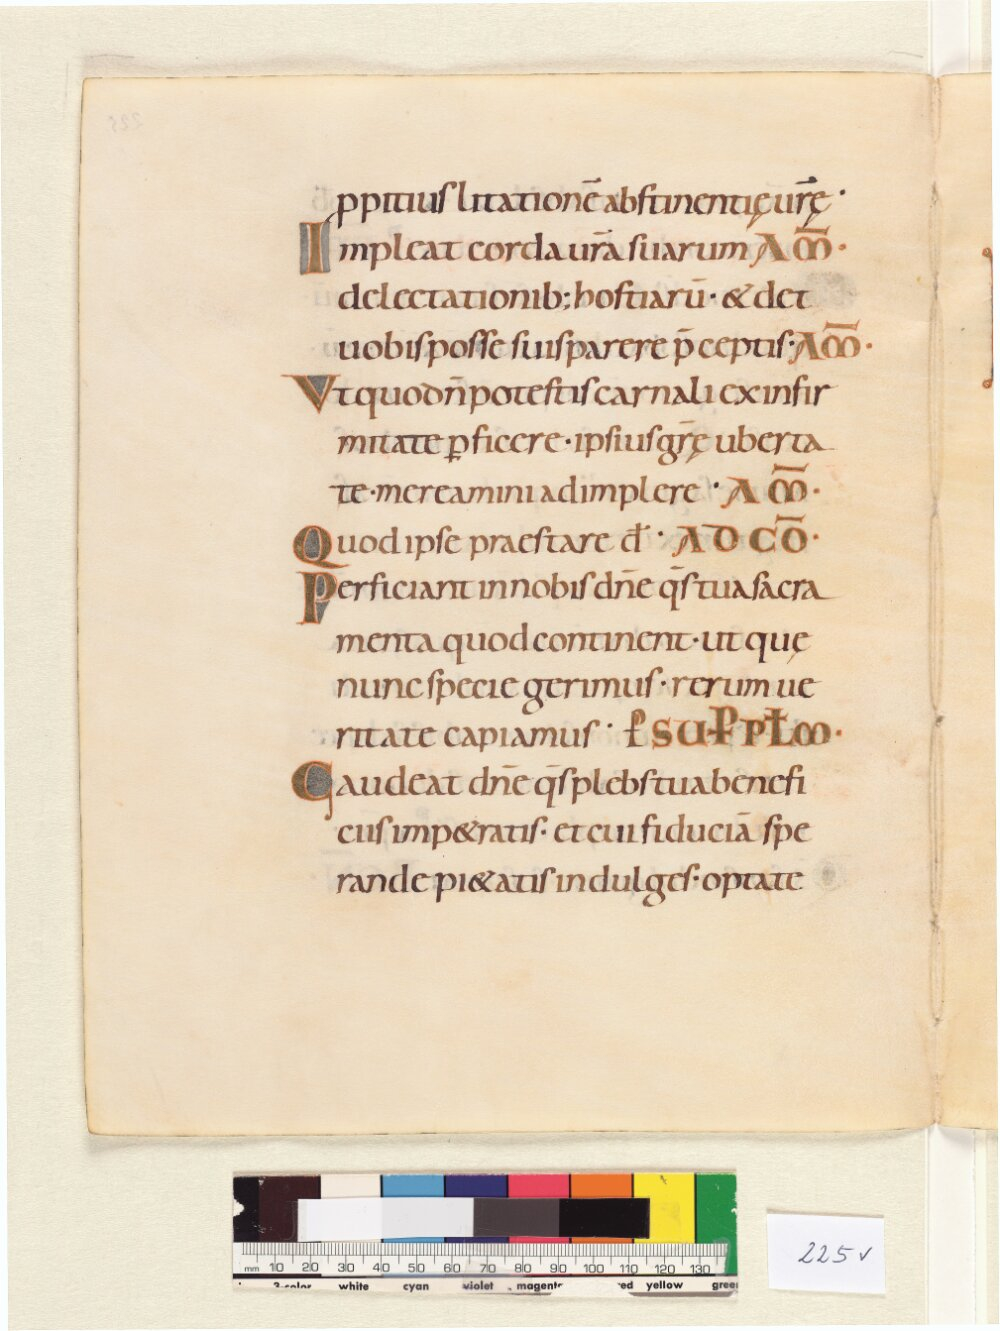 ppitiuſ litationē abſtinentię ur̄ę ·
Impleat corda ur̄a ſuarum AM̄·
delectationib; hoſtiarū· & det
uobiſ poſſe ſuiſ parere p̄ceptiſ· AM̄·
Vt quod n̄ poteſtiſ carnali ex infir
mitate ꝑficere· ipſiuſ gr̄ę uberta
te· mereamini adimplere · AM̄·
Quod ipſe praeſtare đ · AD CŌ·
Perficiant in nobiſ dn̄e q̄ſ tua ſacra
menta quod continent· ut quę
nunc ſpecie gerimuſ· rerum ue
ritate capiamuſ ·
Gaudeat dn̄e q̄ſ plebſ tua benefi
ciiſ imp&ratiſ· et cui fiduciā ſpe
randę pi&atiſ indulgeſ· optate
mm 10 20 30 40 50 60 70 80 90 100 110 120 130
3-color white cyan violet magenta red yellow green
225 v